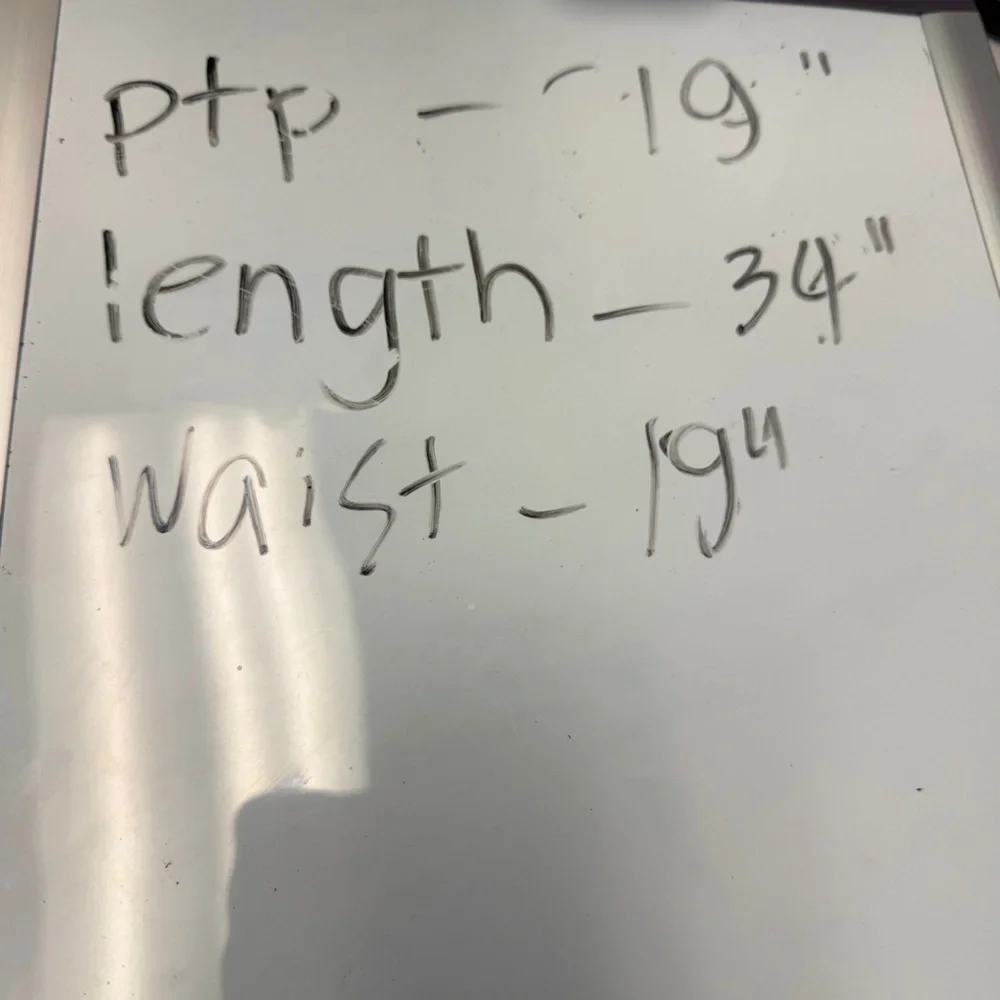 ptp - 19"
length - 34"
waist - 19"